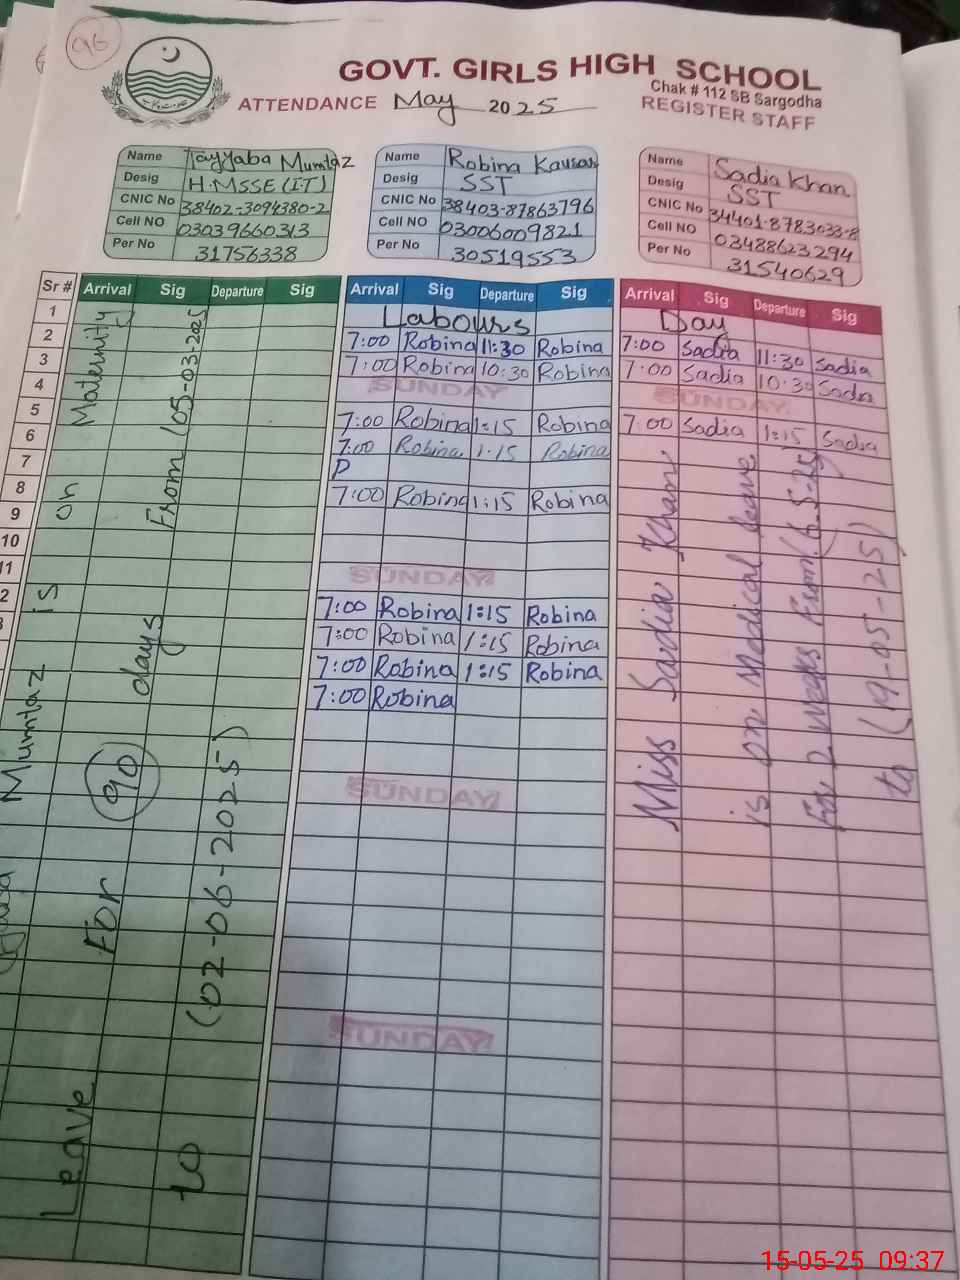 96
GOVT. GIRLS HIGH SCHOOL
Chak # 112 SB Sargodha
ATTENDANCE May 2025
REGISTER STAFF
Name Tayyaba Mumtaz
Desig H.MSSE (I.T)
CNIC No 38402-3094380-2
Cell NO 03039660313
Per No 31756338
Name Robina Kausar
Desig SST
CNIC No 38403-87863796
Cell NO 03006009821
Per No 30519553
Name Sadia Khan
Desig SST
CNIC No 34401-8783033-8
Cell NO 03488623294
Per No 31540629
Sr # Arrival Sig Departure Sig Arrival Sig Departure Sig Arrival Sig Departure Sig
1 Labours Day
2 7:00 Robina 11:30 Robina 7:00 Sadia 11:30 Sadia
3 7:00 Robina 10:30 Robina 7:00 Sadia 10:30 Sadia
4 SUNDAY SUNDAY
5 7:00 Robina 1:15 Robina 7:00 Sadia 1:15 Sadia
6 7:00 Robina 1:15 Robina
7 P
8 7:00 Robina 1:15 Robina
9
10
11 SUNDAY
2 7:00 Robina 1:15 Robina
3 7:00 Robina 1:15 Robina
7:00 Robina 1:15 Robina
7:00 Robina
SUNDAY
SUNDAY
Mumtaz is on Maternity
Leave For 90 days From (05-03-2025
to (02-06-2025)
Miss Sadia Khan
is on Medical leave
For 2 weeks From (6-5-25)
to (19-05-25)
15-05-25 09:37